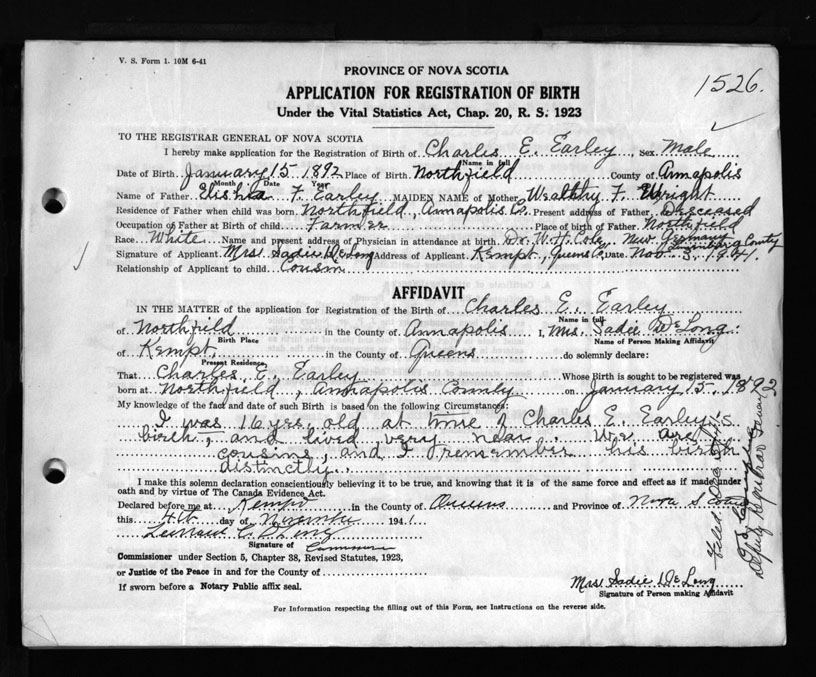 V. S. Form 1. 10M 6-41
1526.
PROVINCE OF NOVA SCOTIA
APPLICATION FOR REGISTRATION OF BIRTH
Under the Vital Statistics Act, Chap. 20, R. S. 1923
TO THE REGISTRAR GENERAL OF NOVA SCOTIA
I hereby make application for the Registration of Birth of Charles E. Earley, Sex Male
Name in full
Date of Birth January 15 1892 Place of Birth Northfield County of Annapolis
Month Date Year
Name of Father Elisha F. Earley MAIDEN NAME of Mother Wealthy F. Wright
Residence of Father when child was born Northfield, Annapolis Co. Present address of Father Deceased
Occupation of Father at Birth of child Farmer Place of birth of Father Northfield
Race White Name and present address of Physician in attendance at birth Dr. W. H. Cole, New Germany Lunenburg County
Signature of Applicant Mrs. Sadie DeLong Address of Applicant Kempt, Queens Co. Date Nov. 3, 1941.
Relationship of Applicant to child Cousin
AFFIDAVIT
IN THE MATTER of the application for Registration of the Birth of Charles E. Earley
Name in full
of Northfield in the County of Annapolis I, Mrs. Sadie DeLong.
Birth Place Name of Person Making Affidavit
of Kempt, in the County of Queens do solemnly declare:
Present Residence
That Charles E. Earley Whose Birth is sought to be registered was
born at Northfield, Annapolis County on January 15, 1892
My knowledge of the fact and date of such Birth is based on the following Circumstances:
I was 16 yrs. old at time of Charles E. Earley's
birth, and lived very near. We are
cousins, and I remember his birth
distinctly.
I make this solemn declaration conscientiously believing it to be true, and knowing that it is of the same force and effect as if made under
oath and by virtue of The Canada Evidence Act.
Declared before me at Kempt in the County of Queens and Province of Nova Scotia
this 4th day of November 1941
Leonard C. DeLong
Signature of
Commissioner under Section 5, Chapter 38, Revised Statutes, 1923,
or Justice of the Peace in and for the County of
If sworn before a Notary Public affix seal.
Mrs. Sadie DeLong
Signature of Person making Affidavit
For Information respecting the filling out of this Form, see Instructions on the reverse side.
Deputy Registrar General